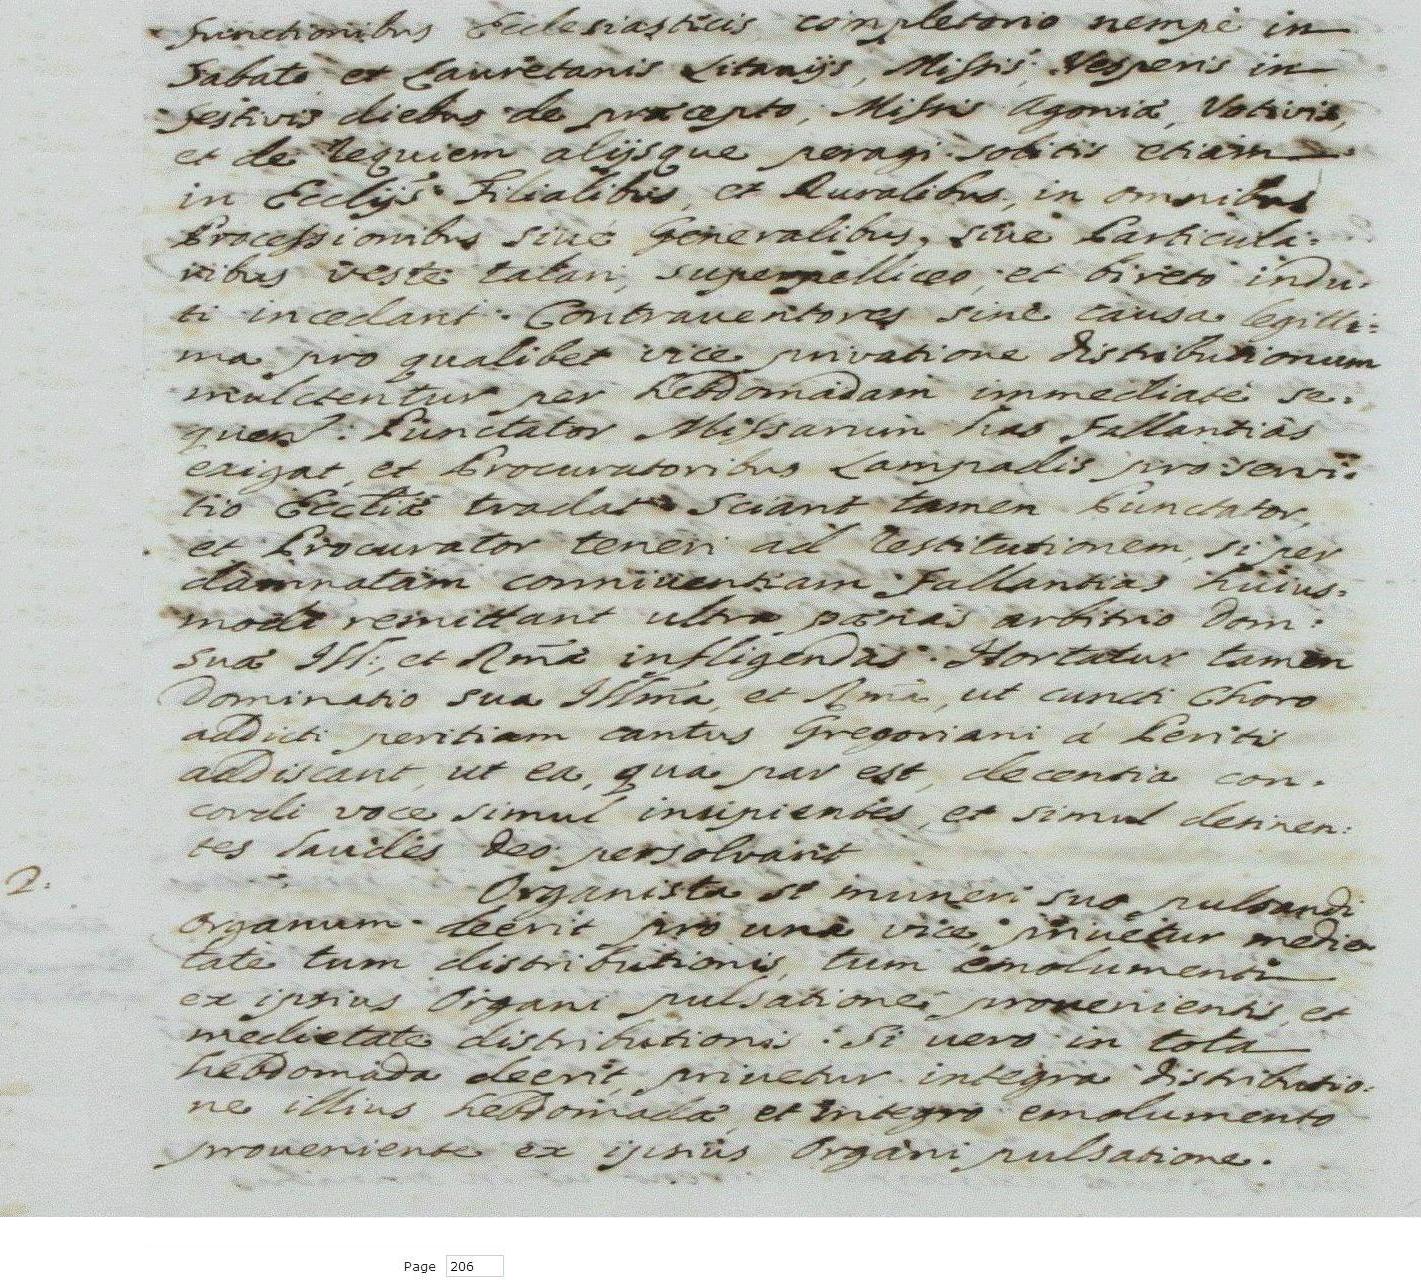 functionibus Ecclesiasticis completorio nempè in
Sabatò, et Lauretanis Litanijs, Missis, Vesperis in
festivis diebus de præcepto, Missis Agoniæ, Votivis,
et de requiem alijsque peragi solitis etiam
in Ecclijs Filialibus, et Ruralibus, in omnibus
Processionibus siuè Generalibus, siue Particula=
ribus veste talari, superpelliceo, et bireto indu=
ti incedant. Contrauentores sinè causa legitti=
ma pro qualibet vice priuatione distributionum
mulctentur per hebdomadam immediatè se=
quen: Punctator Missarum has fallantias
exigat, et Procuratoribus Lampadis pro serui=
tio Ecclîæ tradat. Sciant tamen Punctator,
et Procurator teneri ad restitutionem, si per
damnatam conniuentiam fallantias huius=
modi remittant ultra pænas arbitrio Dom:
suæ Ill:, et Rmæ infligendas. Hortatur tamen
Dominatio sua Illma, et Rma, ut cuncti Choro
addicti peritiam cantus Gregoriani à Peritis
addiscant, ut ea, qua par est, decentia con=
cordi voce simul insipientes, et simul desinen=
tes laudes Deo persolvant
2.
Organista si muneri suo pulsandi
Organum deerit pro unâ vice, priuetur medie
tate tum distributionis, tum emolumenti
ex ipsius Organi pulsatione prouenientis, et
medietate distributionis. Si uero in tota
hebdomada deerit, priuetur integra distributio=
ne illius hebdomadæ, et integro emolumento
proueniente ex ipsius Organi pulsatione.
Page 206